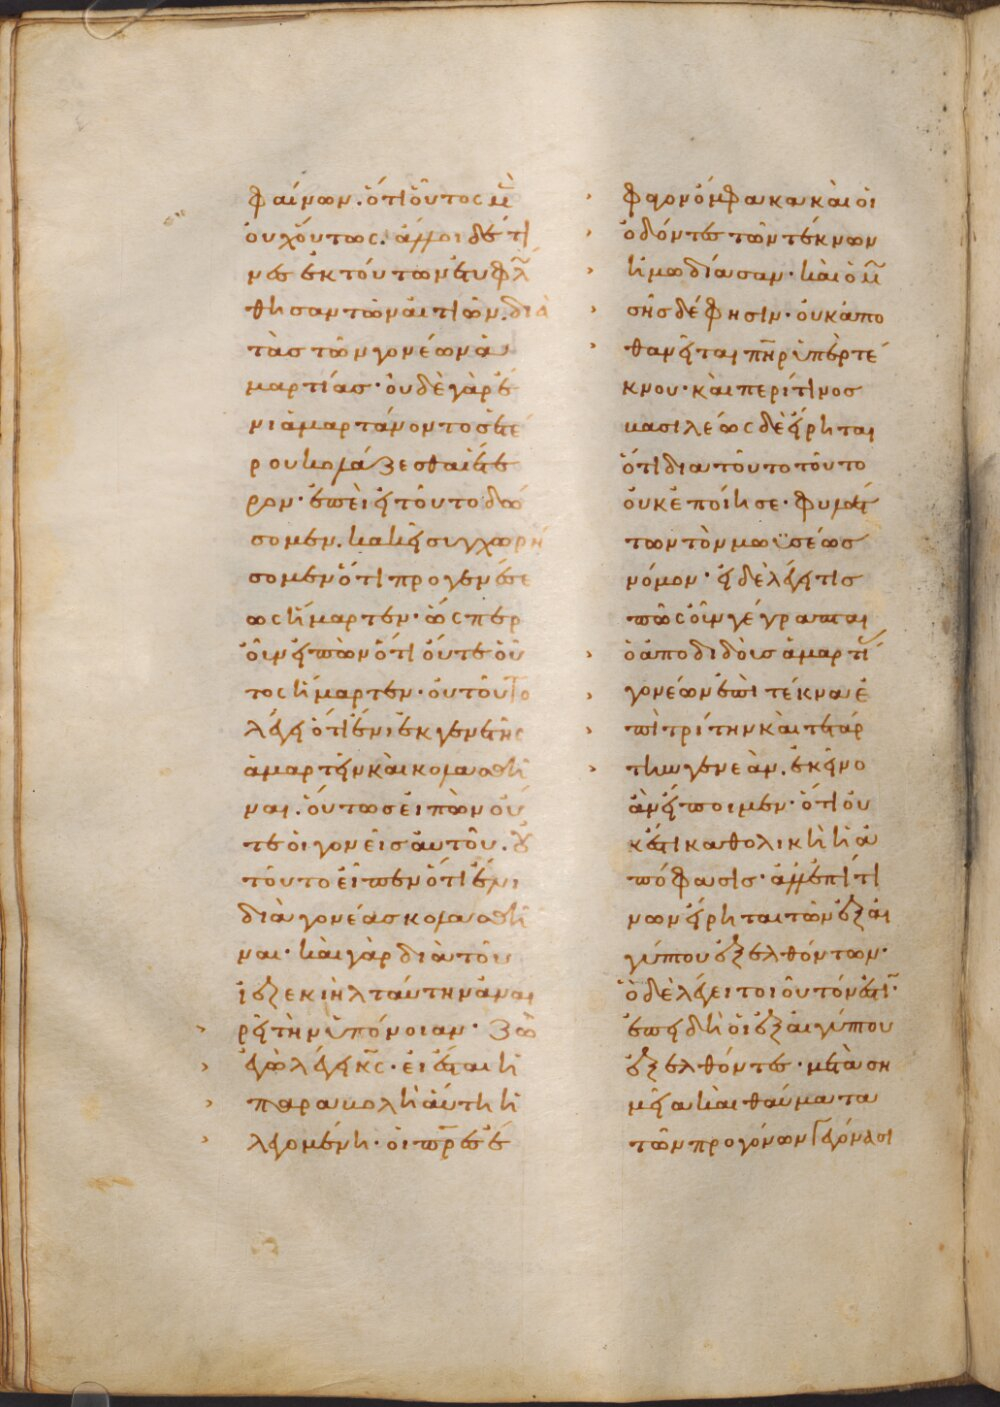 φαίνων. ὅτι οὗτος μ̅
οὐχ οὕτως. ἄλλοι δέ τι
νες ἐκ τούτων ἐτυφλ
θησαν τῶν αἰτιῶν. διὰ
τὰς τῶν γονέων ἁ
μαρτίας· οὐδὲ γὰρ ἔ
νι ἁμαρτάνοντος ἑτέ
ρου κολάζεσθαι ἕτε
ρον· ἐπεὶ εἰ τοῦτο δώ
σομεν. κακεῖ συγχωρή
σομεν ὅτι προ γενέσε
ως ἥμαρτεν· ὥσπερ
οὖν εἰπὼν ὅτι οὔτε οὗ
τος ἥμαρτεν· οὐ τοῦτο
λέγει ὅτι ἔνι ἐκ γενετῆς
ἁμαρτεῖν καὶ κολασθῆ
ναι. οὕτως εἰπὼν οὔ
τε οἱ γονεῖς αὐτοῦ. οὐ
τοῦτο εἶπεν ὅτι ἔνι
διὰ γονέας κολασθῆ
ναι· καὶ γὰρ διὰ τοῦ
ἰεζεκιὴλ ταύτην ἀναι
ρεῖ τὴν ὑπόνοιαν· ζῶ
ἐγὼ λέγει κ̅ς· εἰ ἔσται ἡ
παραβολὴ αὕτη ἡ
λεγομένη· οἱ π̅ρ̅ες ἔ
φαγον ὄμφακα καὶ οἱ
ὀδόντες τῶν τέκνων
ἡμωδίασαν· καὶ ὁ μ̅
σῆς δέ φησιν· οὐκ ἀπο
θανεῖται π̅η̅ρ ὑπὲρ τέ
κνου· καὶ περί τινος
βασιλέως δὲ εἴρηται
ὅτι δια τοῦτο τοῦτο
οὐκ ἐποίησε· φυλατ
των τὸν μωϋσέως
νόμον· εἰ δὲ λέγει τις
πῶς οὖν γέγραπται
ὁ ἀποδιδοὺς ἁμαρτι
γονέων ἐπὶ τέκνα ἐ
πὶ τρίτην καὶ τετάρ
την γενεὰν. ἐκεῖνο
ἂν εἴποιμεν· ὅτι οὐ
κέτι καθολικὴ ἡ ἀ
πόφασις· ἀλλ' ἐπί τι
νων εἴρηται τῶν ἐξ αἰ
γύπτου ἐξελθόντων·
ὃ δὲ λέγει τοιοῦτόν ἐστι·
ἐπειδὴ οἱ ἐξ αἰγύπτου
ἐξελθόντες· μετὰ ση
μεῖα καὶ θαύματα
τῶν προγόνων γεγόνασι